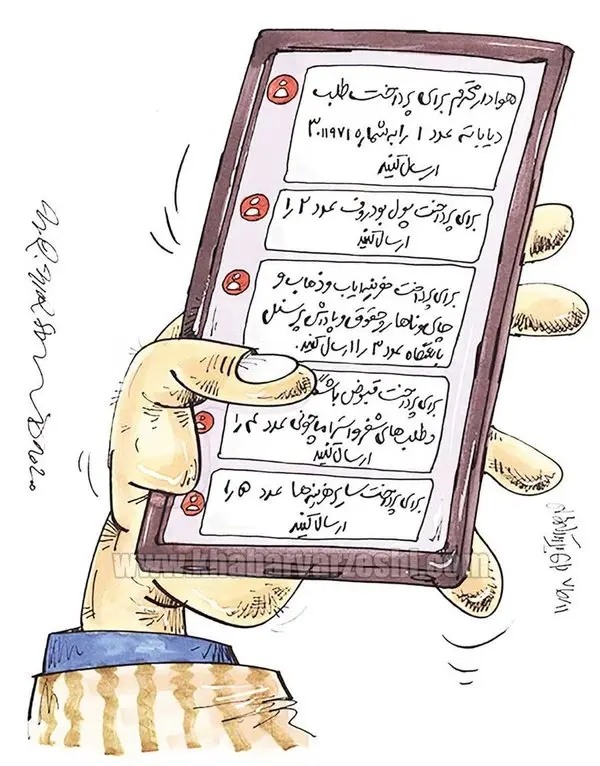 هوادار محترم برای پرداخت طلب
دیاباته عدد ۱ را به شماره ۳۰۱۱۹۷۱
ارسال کنید
برای پرداخت پول بودروف عدد ۲ را
ارسال کنید
برای پرداخت هزینه ایاب و ذهاب و
چای و ناهار و حقوق و پاداش پرسنل
باشگاه عدد ۳ را ارسال کنید.
برای پرداخت قبوض باشگاه
و طلب‌های شفر و استراماچونی عدد ۴ را
ارسال کنید
برای پرداخت سایر هزینه‌ها عدد ۵ را
ارسال کنید
www.khabarvarzeshi.com